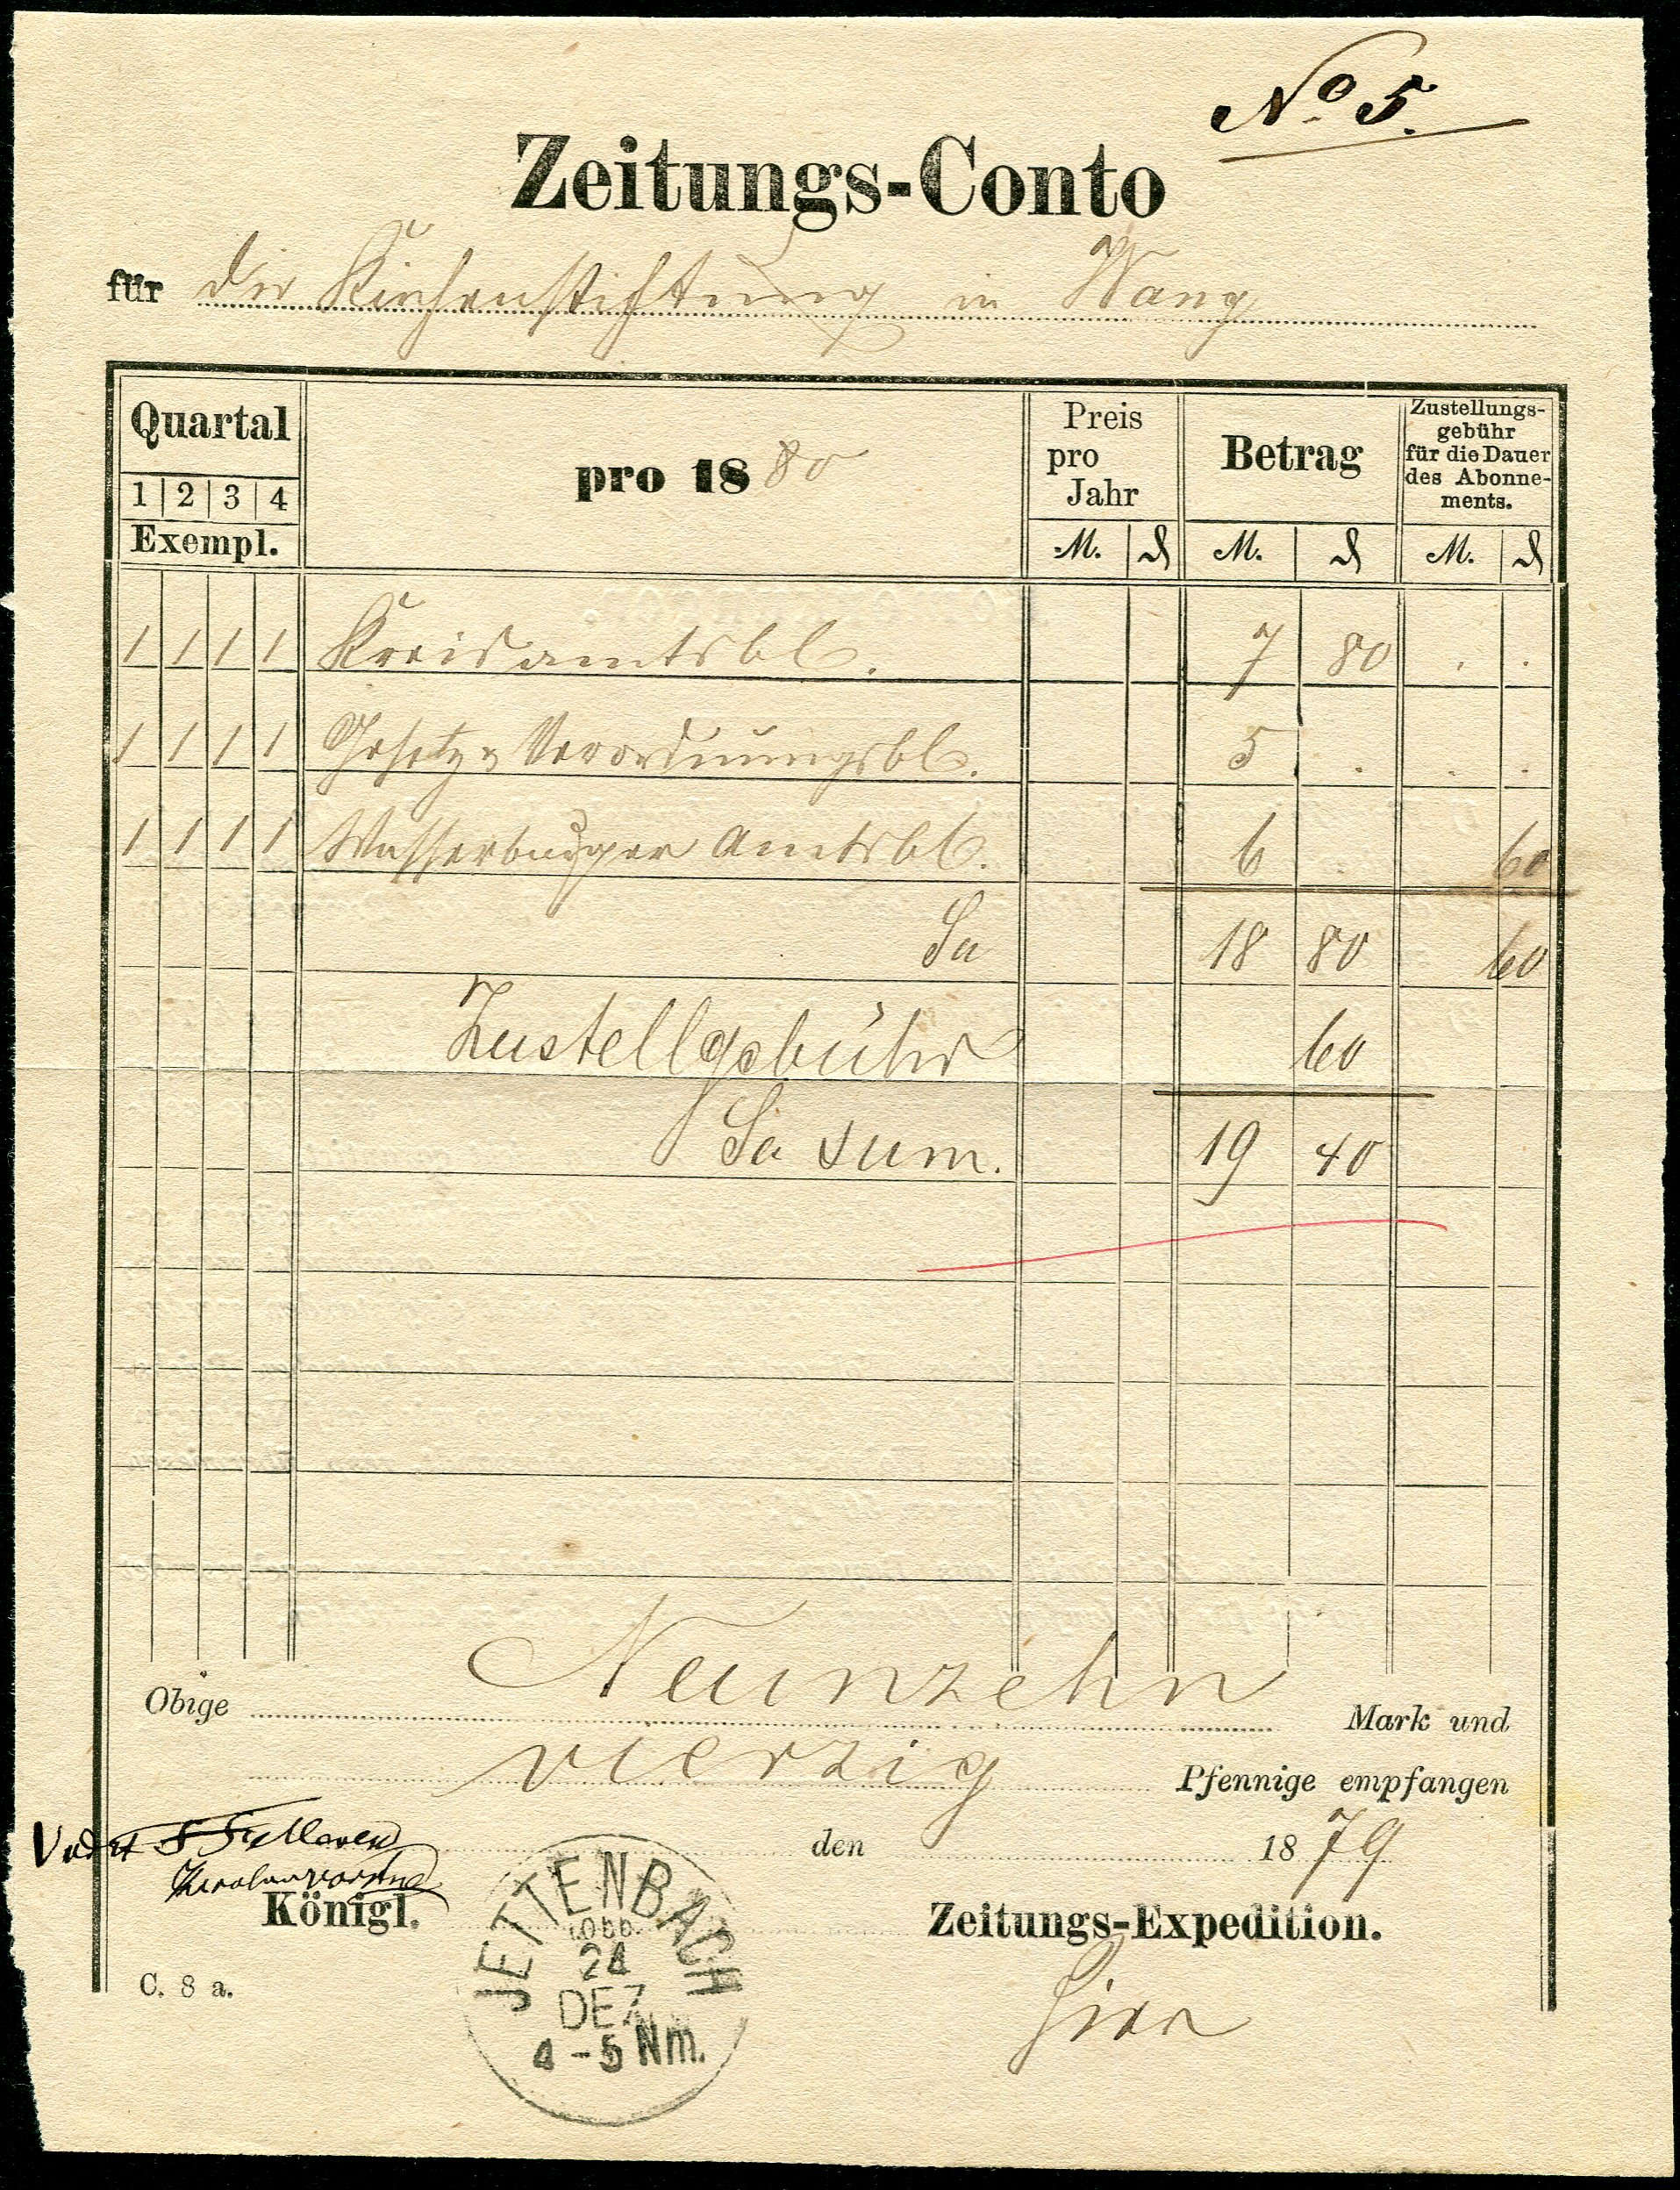 No 5.
Zeitungs-Conto
für die Kirchenstiftung in Wang
Quartal
1 | 2 | 3 | 4
Exempl.
pro 1880
Preis
pro
Jahr
M. | ₰
Betrag
M. | ₰
Zustellungs-
gebühr
für die Dauer
des Abonne-
ments.
M. | ₰
1 1 1 1 Kreisamtsbl. 7 80 . .
1 1 1 1 Gesetz u Verordnungsbl. 5 . . .
1 1 1 1 Wasserburger Amtsbl. 6 . 60
Sa 18 80 60
Zustellgebühr 60
Sa Sum. 19 40
Obige Neunzehn Mark und
vierzig Pfennige empfangen
den 1879
Königl. Zeitungs-Expedition.
JETTENBACH
24
DEZ
4-5 Nm.
C. 8 a.